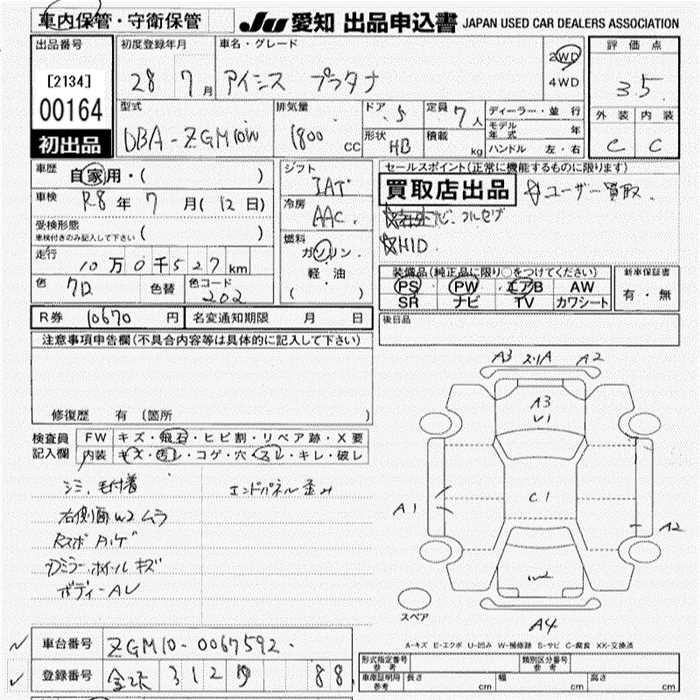 車内保管・守衛保管
JU 愛知 出品申込書 JAPAN USED CAR DEALERS ASSOCIATION
出品番号
[2134]
00164
初出品
初度登録年月
28 7月
車名・グレード
アイシス プラタナ
2WD
4WD
評価点
3.5
外装 内装
C C
型式
DBA-ZGM10W
排気量
1800 CC
ドア 5
形状 HB
定員 7人
積載 kg
ディーラー・並行
モデル年式 年
ハンドル 左・右
車歴 自家用・( )
車検 R8年 7月(12日)
受検形態
車検付きのみ記入して下さい ( )
走行 10万0千527km
色
色替
色コード
202
シフト
IAT
冷房
AAC
燃料
ガソリン
軽・油
( )
セールスポイント(正常に機能するものに限ります)
買取店出品 ☆ユーザー買取.
☆HID.
装備品(純正品に限り○をつけてください)
PS PW エアB AW
SR ナビ TV カワシート
新車保証書
有・無
R券 10670 円 名変通知期限 月 日
後日品
注意事項申告欄(不具合内容等は具体的に記入して下さい)
修復歴 有 (箇所 )
検査員記入欄
FW キズ・飛石・ヒビ割・リペア跡・X要
内装 キズ・汚レ・コゲ・穴・スレ・キレ・破レ
シミ、毛付着
エンドパネル歪み
右側面W2ムラ
Dミラー、ホイールキズ
ボディーAU
A3 A2
A3
U1
A1
C1
A2
W2
A4
スペア
A-キズ E-エクボ U-凹み W-補修跡 S-サビ C-腐食 XX-交換済
車台番号 ZGM10-0067592.
登録番号 312 88
形式指定番号 参考
類別区分番号 参考
車庫証明用 参考 長さ cm 幅 cm 高さ cm